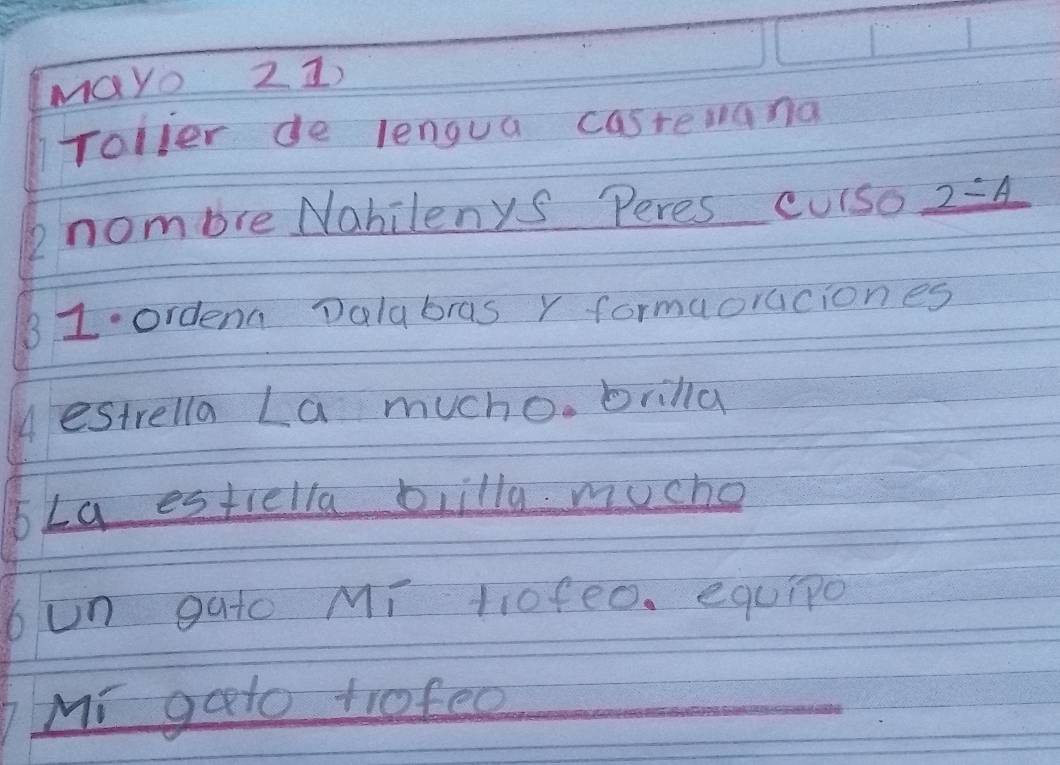 Mayo 21
1 Toller de lengua castellana
2 nombre Nahilenys Peres curso 2-A
3 1. ordena Palabras y formaoraciones
4 estrella La mucho. brilla
5 La estrella brilla. mucho
6 un gato Mi trofeo. equipo
7 Mi gato trofeo